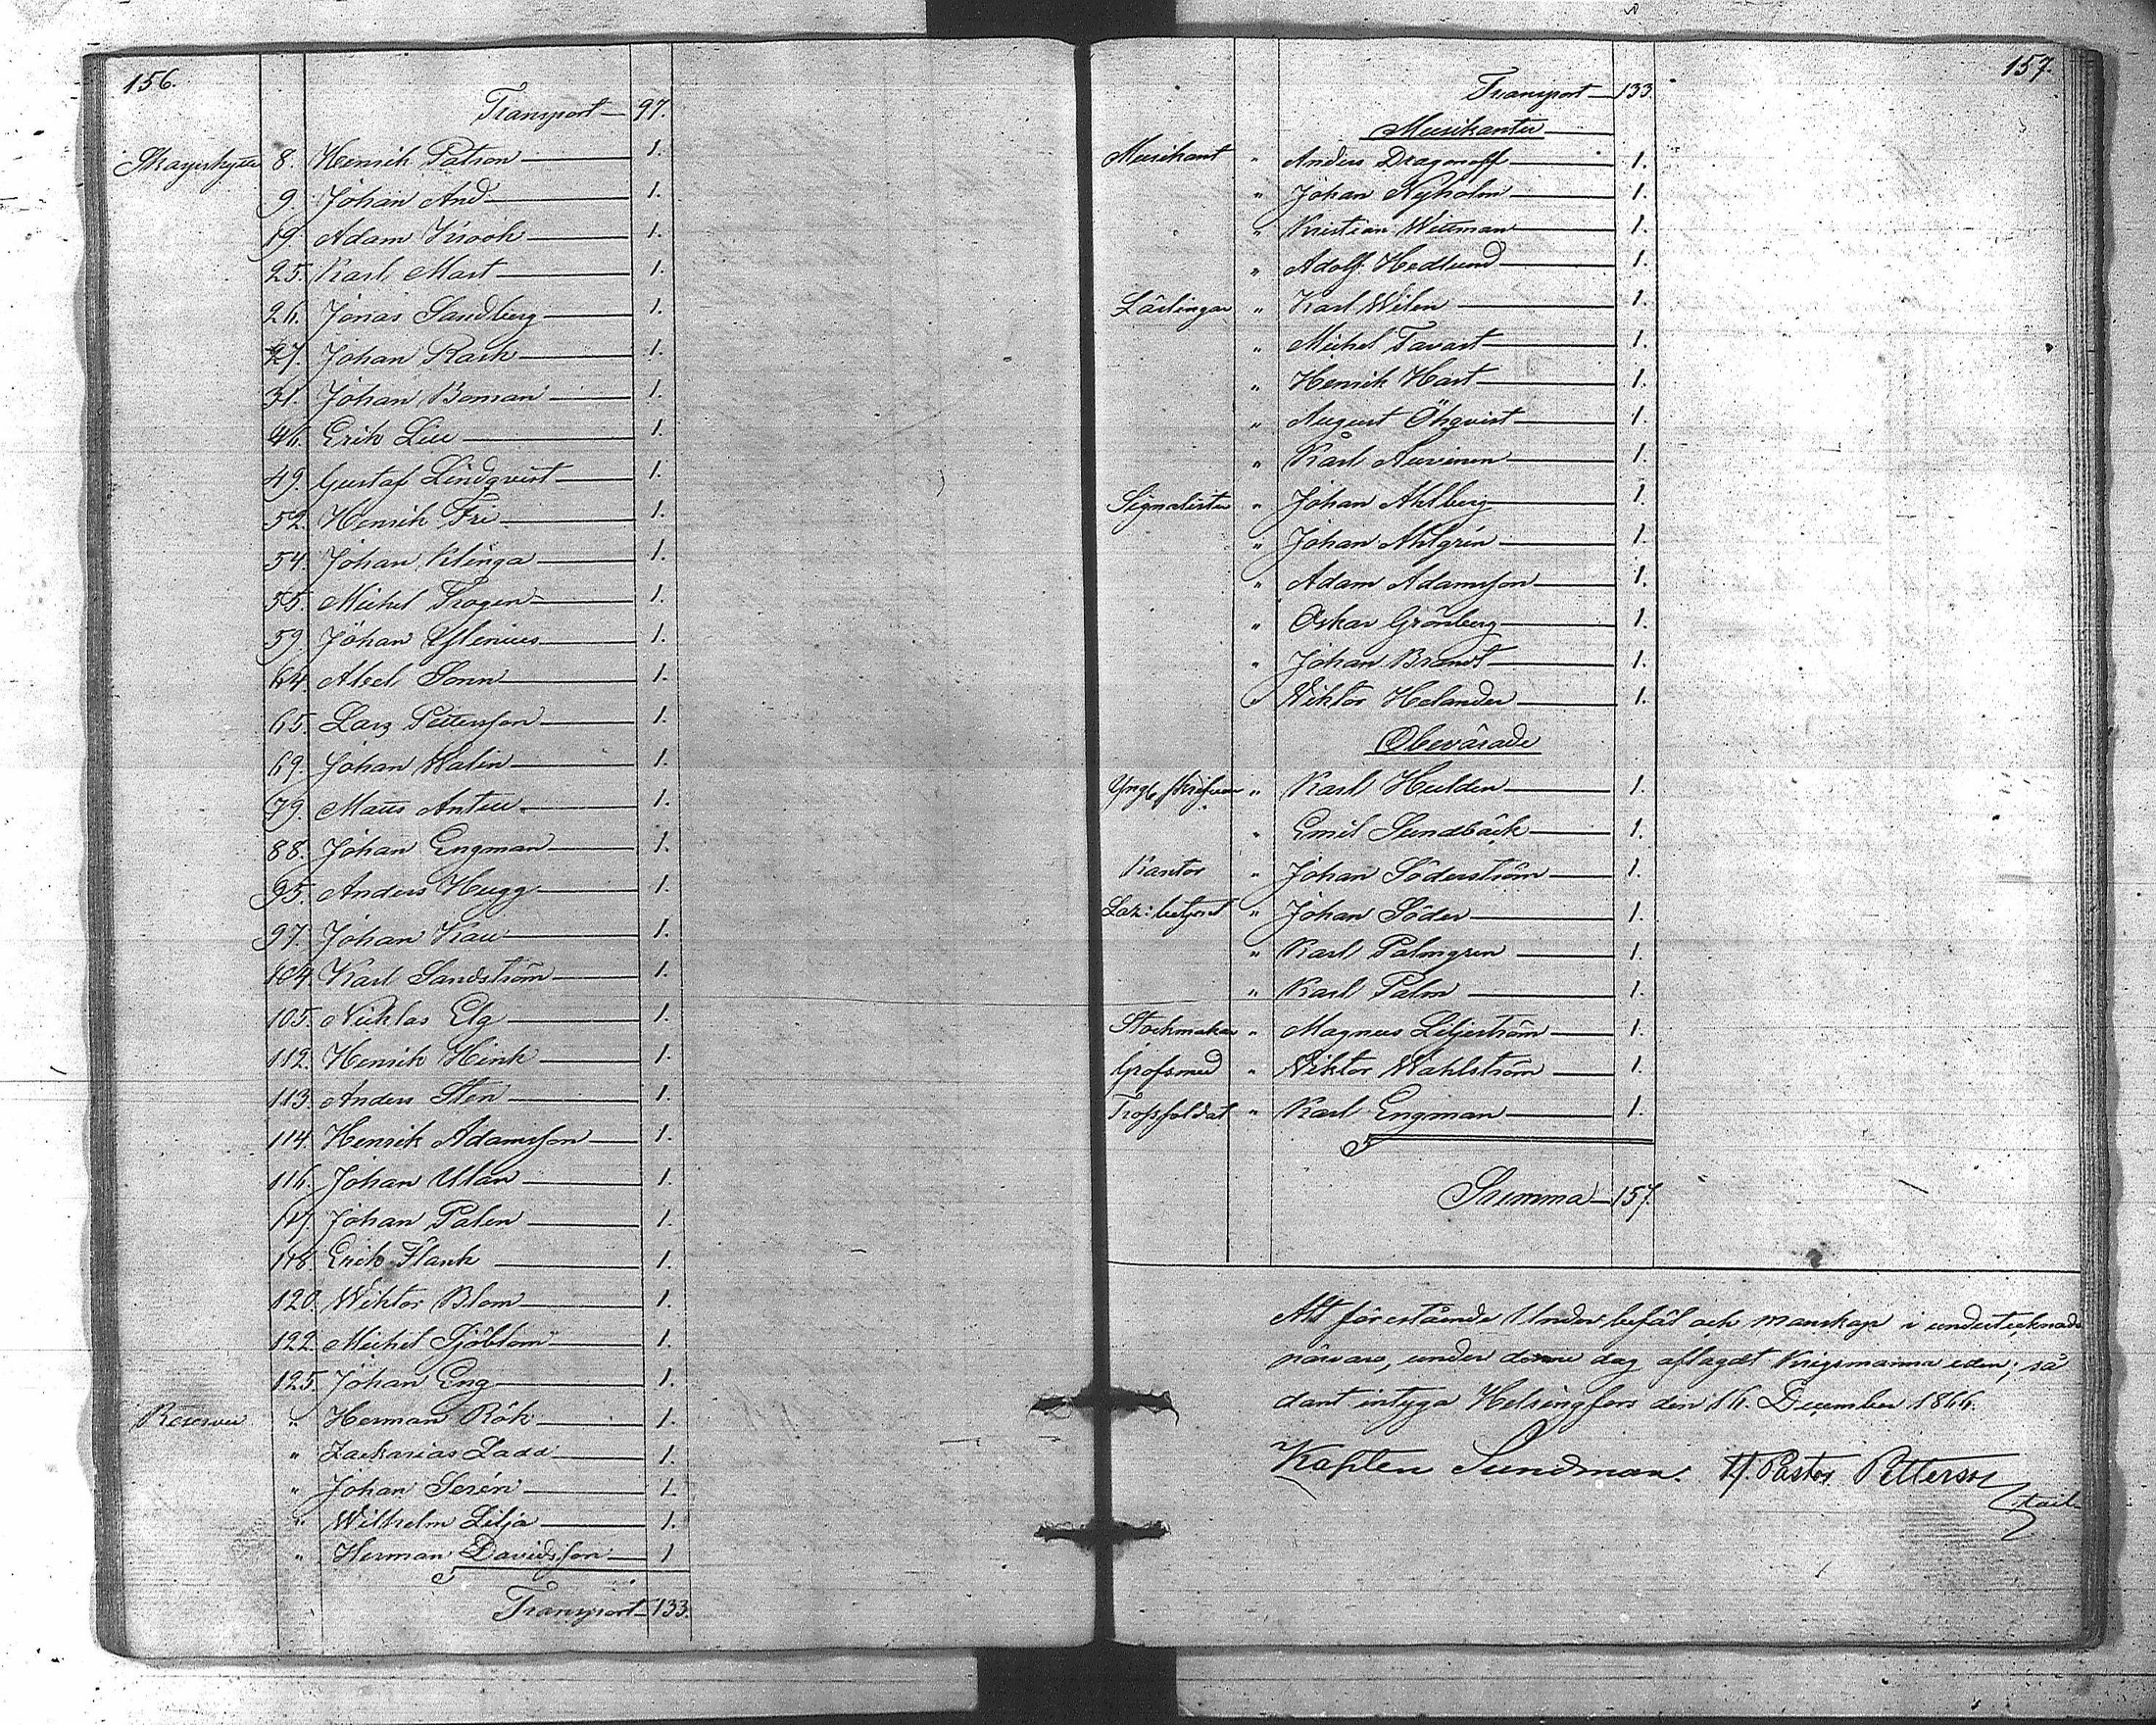 156.
Transport 97.
Skarpskytte 8. Henrik Patron 1.
9. Johan And 1.
19. Adam Krook 1.
25. Karl Mart 1.
26. Jonas Sandberg 1.
27. Johan Rask 1.
31. Johan Boman 1.
46. Erik Liu 1.
49. Gustaf Lindqvist 1.
52. Henrik Fri 1.
54. Johan Klinga 1.
55. Michel Trogen 1.
59. Johan Ylenius 1.
64. Abel Sonn 1.
65. Lars Pettersson 1.
69. Johan Walin 1.
79. Mats Anteu 1.
88. Johan Engman 1.
95. Anders Hugg 1.
97. Johan Kau 1.
104. Karl Sandström 1.
105. Niklas Elg 1.
112. Henrik Hink 1.
113. Anders Sten 1.
114. Henrik Adamsson 1.
116. Johan Ulan 1.
117. Johan Palen 1.
118. Erik Flank 1.
120. Wiktor Blom 1.
122. Michel Sjöblom 1.
125. Johan Eng 1.
Reserver " Herman Rök 1.
" Zackarias Ladd 1.
" Johan Serén 1.
" Wilhelm Lilja 1.
" Herman Davidsson 1
Transport 133.
157.
Transport 133.
Musikanter
Musikant " Anders Dragoneff 1.
" Johan Nyholm 1.
" Kristian Wittman 1.
" Adolf Hedlund 1.
Lärlingar " Karl Wilen 1.
" Michel Tavast 1.
" Henrik Hart 1.
" August Öhqvist 1.
" Karl Auvinen 1.
Signalister " Johan Ahlberg 1.
" Johan Ahlgrén 1.
" Adam Adamsson 1.
" Oskar Grönberg 1.
" Johan Brandt 1.
" Wiktor Helander 1.
Obevärade
Yng: skrifvare " Karl Hulden 1.
" Emil Sundbäck 1.
Kantor " Johan Söderström 1.
Laz: betjent " Johan Söder 1.
" Karl Palmgren 1.
" Karl Palm 1.
Stockmakare " Magnus Liljeström 1.
Grofsmed " Wiktor Wahlström 1.
Trossoldat " Karl Engman 1.
Summa 157.
Att förestående Underbefäl och manskap i undertecknads
närvaro, under denne dag aflagdt Krigsmanna eden; så
dant intyga Helsingfors den 16 December 1866.
Kapten Sundman. Tf Pastor Petterson